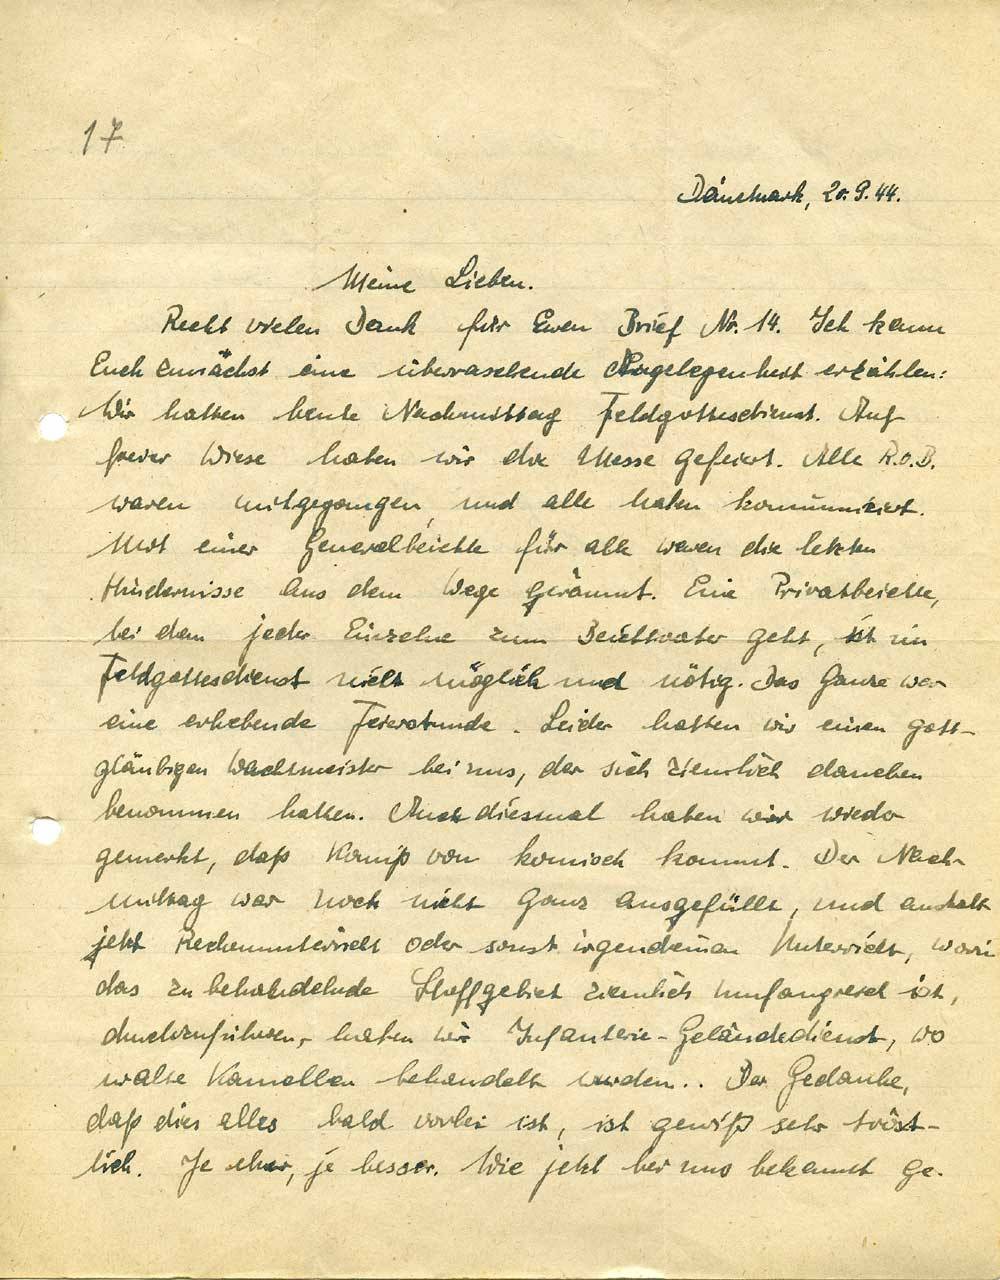 17
Dänemark, 20.9.44.
Meine Lieben.
Recht vielen Dank für Euren Brief Nr. 14. Ich kann
Euch zunächst eine überraschende Angelegenheit erzählen:
Wir hatten heute Nachmittag Feldgottesdienst. Auf
freier Wiese haben wir die Messe gefeiert. Alle R.O.B.
waren mitgegangen, und alle haben kommuniziert.
Mit einer Generalbeichte für alle waren die letzten
Hindernisse aus dem Wege geräumt. Eine Privatbeichte,
bei dem jeder Einzelne zum Beichtvater geht, ist im
Feldgottesdienst nicht möglich und nötig. Das Ganze war
eine erhebende Feierstunde. Leider hatten wir einen gott-
gläubigen Wachtmeister bei uns, der sich ziemlich daneben
benommen hatten. Auch diesmal haben wir wieder
gemerkt, daß Komiß von komisch kommt. Der Nach-
mittag war noch nicht ganz ausgefüllt, und anstatt
jetzt Rechenunterricht oder sonst irgendeinen Unterricht, worin
das zu behandelnde Stoffgebiet ziemlich umfangreich ist,
durchzuführen, hatten wir Infanterie-Geländedienst, wo
uralte Kamellen behandelt wurden.. Der Gedanke,
daß dies alles bald vorbei ist, ist gewiß sehr tröst-
lich. Je eher, je besser. Wie jetzt bei uns bekannt ge-